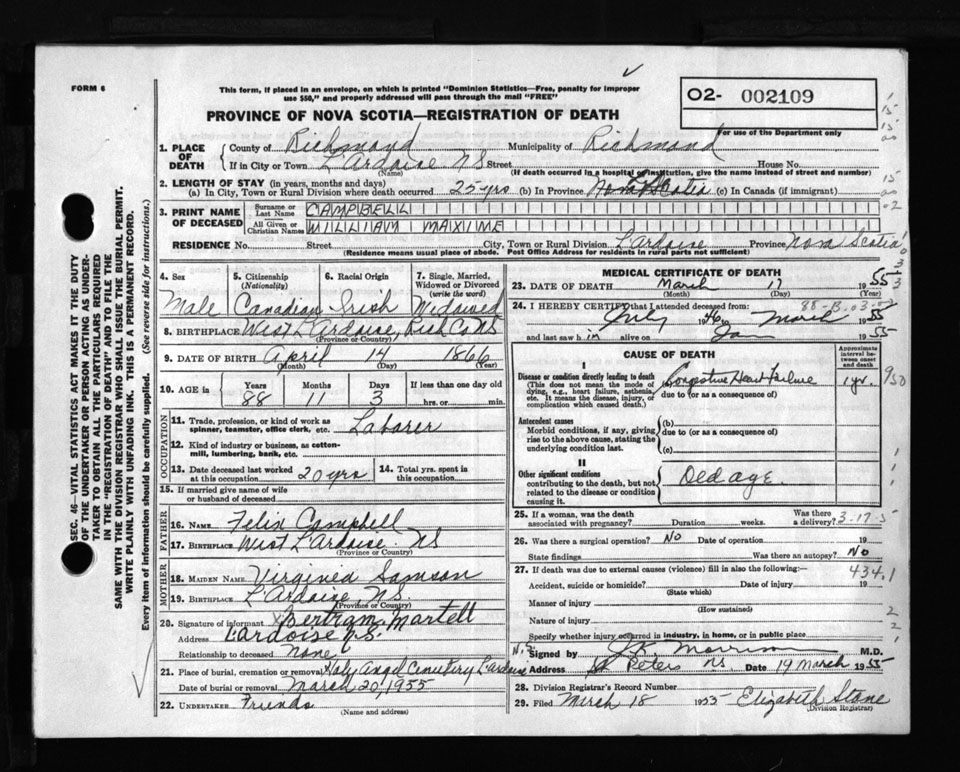 FORM 6
This form, if placed in an envelope, on which is printed "Dominion Statistics—Free, penalty for improper
use $50," and properly addressed will pass through the mail "FREE"
O2- 002109
For use of the Department only
PROVINCE OF NOVA SCOTIA—REGISTRATION OF DEATH
1. PLACE OF DEATH
County of Richmond Municipality of Richmond
If in City or Town L'Ardoise NS Street House No.
(Name) (If death occurred in a hospital or institution, give the name instead of street and number)
2. LENGTH OF STAY (in years, months and days)
(a) In City, Town or Rural Division where death occurred 25 yrs (b) In Province Nova Scotia (c) In Canada (if immigrant)
3. PRINT NAME OF DECEASED
Surname or Last Name CAMPBELL
All Given or Christian Names WILLIAM MAXIME
RESIDENCE No. Street City, Town or Rural Division L'ardoise Province Nova Scotia
(Residence means usual place of abode. Post Office Address for residents in rural parts not sufficient)
4. Sex
Male
5. Citizenship (Nationality)
Canadian
6. Racial Origin
Irish
7. Single, Married, Widowed or Divorced (write the word)
Widowed
8. BIRTHPLACE West L'Ardoise, Rich Co NS
(Province or Country)
9. DATE OF BIRTH April 14 1866
(Month) (Day) (Year)
10. AGE in Years Months Days If less than one day old
88 11 3 hrs. or min.
OCCUPATION
11. Trade, profession, or kind of work as spinner, teamster, office clerk, etc. Laborer
12. Kind of industry or business, as cotton-mill, lumbering, bank, etc.
13. Date deceased last worked at this occupation 20 yrs
14. Total yrs. spent in this occupation
15. If married give name of wife or husband of deceased
FATHER
16. NAME Felix Campbell
17. BIRTHPLACE West L'Ardoise NS
(Province or Country)
MOTHER
18. MAIDEN NAME Virginia Samson
19. BIRTHPLACE L'Ardoise, N.S.
(Province or Country)
20. Signature of informant X Bertram Martell
Address Lardoise N.S.
Relationship to deceased None
21. Place of burial, cremation or removal Holy Angel Cemetery L'ardoise
Date of burial or removal March 20, 1955
22. UNDERTAKER Friends
(Name and address)
MEDICAL CERTIFICATE OF DEATH
23. DATE OF DEATH March 17 1955
(Month) (Day) (Year)
24. I HEREBY CERTIFY that I attended deceased from: 88-B.03.
July 1946 to March 1955
and last saw h im alive on Jan 1955
CAUSE OF DEATH
Approximate interval between onset and death
I
Disease or condition directly leading to death
(This does not mean the mode of dying, e.g., heart failure, asthenia, etc. It means the disease, injury, or complication which caused death.)
(a) Congestive Heart Failure 1 yr.
due to (or as a consequence of)
Antecedent causes
Morbid conditions, if any, giving rise to the above cause, stating the underlying condition last.
(b)
due to (or as a consequence of)
(c)
II
Other significant conditions
contributing to the death, but not related to the disease or condition causing it.
Old age
25. If a woman, was the death associated with pregnancy? Duration weeks. Was there a delivery? 3.17.5
26. Was there a surgical operation? No Date of operation 19
State findings Was there an autopsy? No
27. If death was due to external causes (violence) fill in also the following:— 434.1
Accident, suicide or homicide? Date of injury 19
(State which)
Manner of injury
(How sustained)
Nature of injury
Specify whether injury occurred in industry, in home, or in public place
Signed by Morrison M.D.
Address St Peters N.S. Date 19 March 1955
28. Division Registrar's Record Number
29. Filed March 18 1955 Elizabeth Stone
(Division Registrar)
SEC. 46—VITAL STATISTICS ACT MAKES IT THE DUTY
OF THE UNDERTAKER OR PERSON ACTING AS UNDER-
TAKER TO OBTAIN ALL THE PARTICULARS REQUIRED
IN THE "REGISTRATION OF DEATH" AND TO FILE THE
SAME WITH THE DIVISION REGISTRAR WHO SHALL ISSUE THE BURIAL PERMIT.
WRITE PLAINLY WITH UNFADING INK. THIS IS A PERMANENT RECORD.
Every item of information should be carefully supplied. (See reverse side for instructions.)